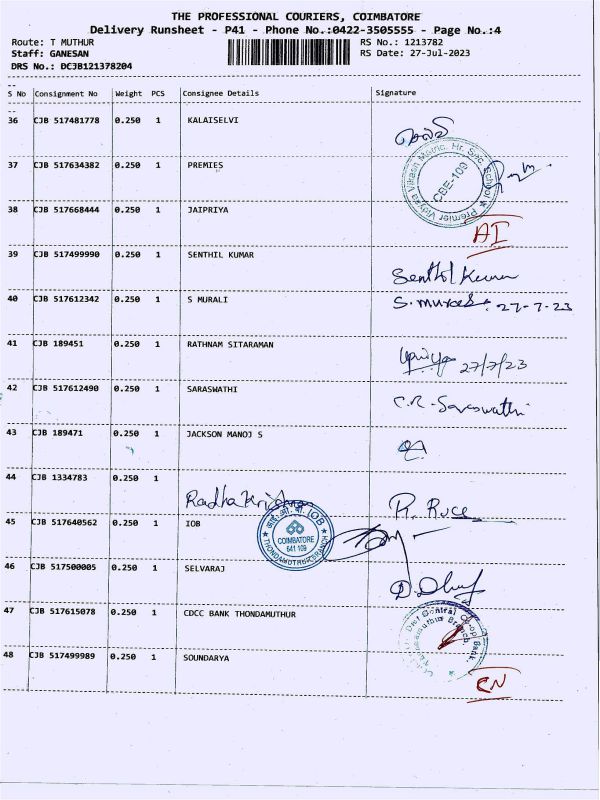 THE PROFESSIONAL COURIERS, COIMBATORE
Delivery Runsheet - P41 - Phone No.:0422-3505555 - Page No.:4
Route: T MUTHUR RS No.: 1213782
Staff: GANESAN RS Date: 27-Jul-2023
DRS No.: DCJB121378204
S No Consignment No Weight PCS Consignee Details Signature
36 CJB 517481778 0.250 1 KALAISELVI
37 CJB 517634382 0.250 1 PREMIES
Premier Vidyaa Vikash Matric. Hr. Sec. School
CBE-109
38 CJB 517668444 0.250 1 JAIPRIYA AI
39 CJB 517499990 0.250 1 SENTHIL KUMAR Senthil Kumar
40 CJB 517612342 0.250 1 S MURALI S. Murali 27-7-23
41 CJB 189451 0.250 1 RATHNAM SITARAMAN 27/7/23
42 CJB 517612490 0.250 1 SARASWATHI C.R. Saraswathi
43 CJB 189471 0.250 1 JACKSON MANOJ S
44 CJB 1334783 0.250 1 Radha Krishna
45 CJB 517640562 0.250 1 IOB
IOB
COIMBATORE
641 109
46 CJB 517500005 0.250 1 SELVARAJ
47 CJB 517615078 0.250 1 CDCC BANK THONDAMUTHUR
48 CJB 517499989 0.250 1 SOUNDARYA CN